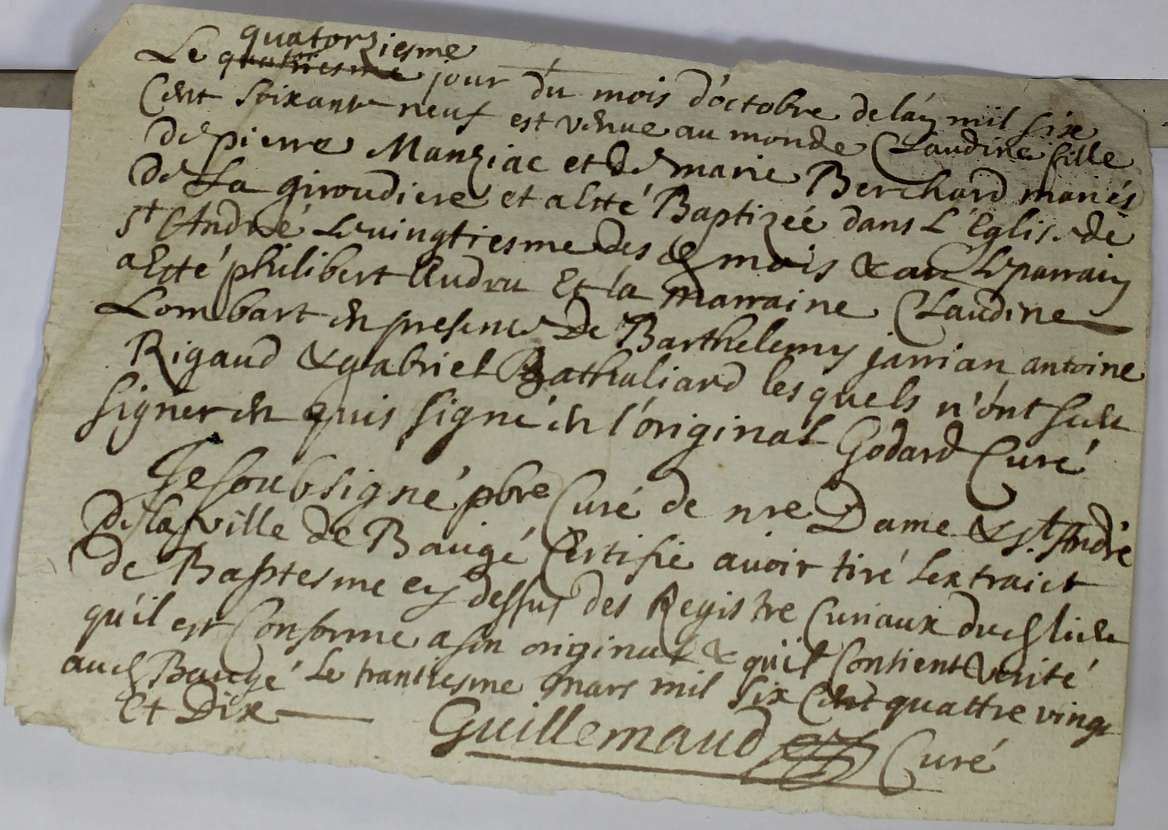 quatorziesme
Le quatriesme jour du mois d'octobre de lan mil six
Cent soixante neuf est venue au monde Claudine fille
de pierre Manziac et de marie Berchard mariés
de La giroudiere et a esté Baptizée dans L'Eglise de
St André Le vingtiesme des d mois & an Le parrain
a Esté philibert Audru Et la marraine Claudine
Lombart en presence de Barthelemy jarrian antoine
Rigaud & gabriel Bathaliard lesquels n'ont sceu
signer en quis signé en l'original Godard Curé
Je soubsigné pbre Curé de nre Dame & st André
de la ville de Baugé Certifie avoir tiré Lextraict
de Baptesme cy dessus des Registre Curiaux dud lieu
qu'il est Conforme a son original & qu'il Contient verité
aud Baugé Le trantiesme mars mil six Cent quattre vingt
Et Dix
Guillemaud Curé